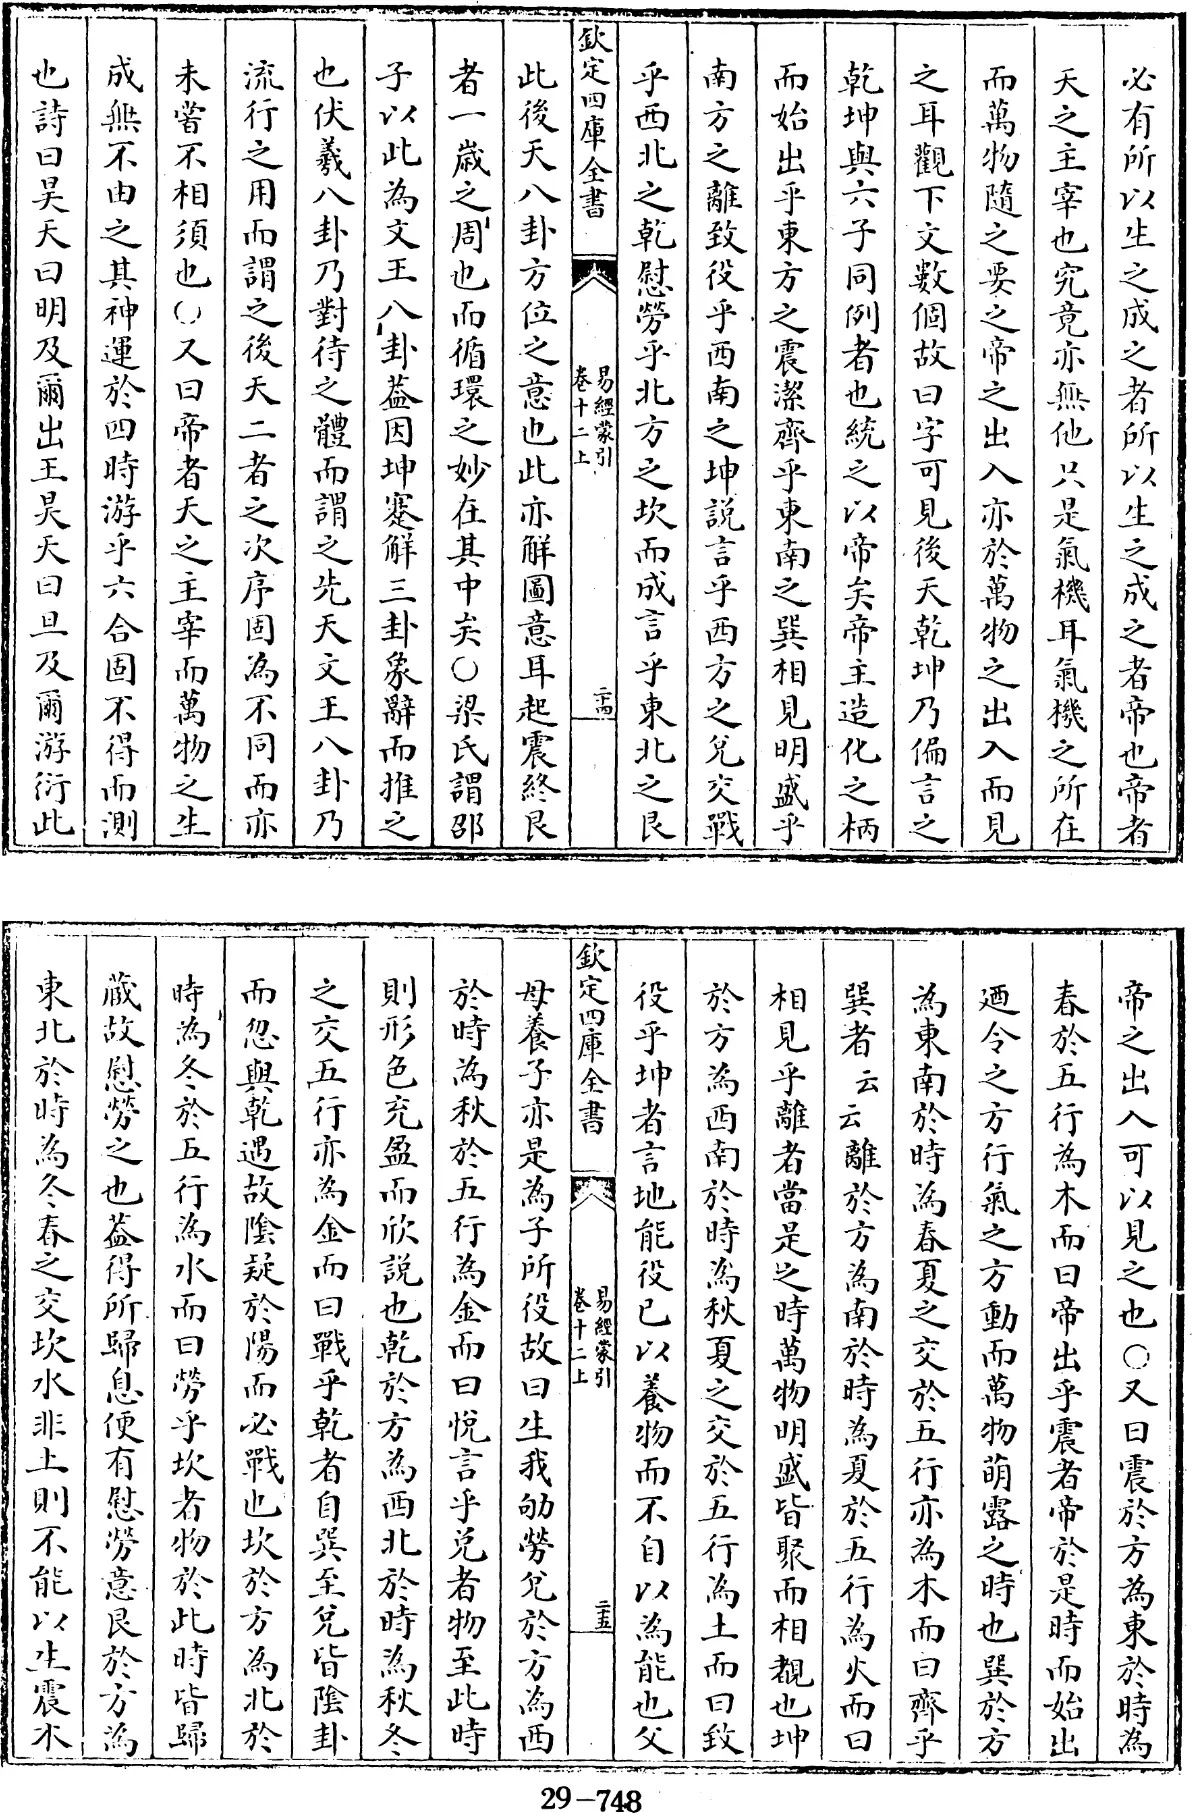 必有所以生之成之者所以生之成之者帝也帝者
天之主宰也究竟亦無他只是氣機耳氣機之所在
而萬物隨之要之帝之出入亦於萬物之出入而見
之耳觀下文數個故曰字可見後天乾坤乃偏言之
乾坤與六子同例者也統之以帝矣帝主造化之柄
而始出乎東方之震潔齊乎東南之巽相見明盛乎
南方之離致役乎西南之坤説言乎西方之兌交戰
乎西北之乾慰勞乎北方之坎而成言乎東北之艮
欽定四庫全書
易經蒙引
卷十二上
二十四
此後天八卦方位之意也此亦解圖意耳起震終艮
者一歲之周也而循環之妙在其中矣○梁氏謂邵
子以此為文王八卦葢因坤蹇解三卦彖辭而推之
也伏羲八卦乃對待之體而謂之先天文王八卦乃
流行之用而謂之後天二者之次序固為不同而亦
未嘗不相須也○又曰帝者天之主宰而萬物之生
成無不由之其神運於四時游乎六合固不得而測
也詩曰昊天曰明及爾出王昊天曰旦及爾游衍此
帝之出入可以見之也○又曰震於方為東於時為
春於五行為木而曰帝出乎震者帝於是時而始出
廼令之方行氣之方動而萬物萌露之時也巽於方
為東南於時為春夏之交於五行亦為木而曰齊乎
巽者云云離於方為南於時為夏於五行為火而曰
相見乎離者當是之時萬物明盛皆聚而相覩也坤
於方為西南於時為秋夏之交於五行為土而曰致
役乎坤者言地能役已以養物而不自以為能也父
欽定四庫全書
易經蒙引
卷十二上
二十五
母養子亦是為子所役故曰生我劬勞兌於方為西
於時為秋於五行為金而曰悅言乎兌者物至此時
則形色充盈而欣説也乾於方為西北於時為秋冬
之交五行亦為金而曰戰乎乾者自巽至兌皆陰卦
而忽與乾遇故陰疑於陽而必戰也坎於方為北於
時為冬於五行為水而曰勞乎坎者物於此時皆歸
藏故慰勞之也葢得所歸息便有慰勞意艮於方為
東北於時為冬春之交坎水非土則不能以生震木
29-748